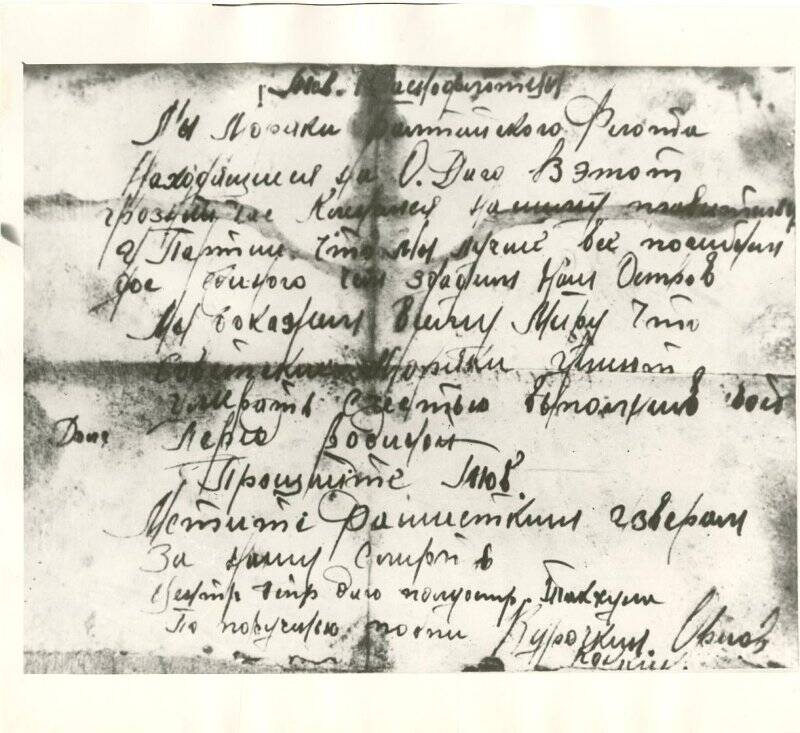 Тов.
Мы Моряки Балтийского Флота
Находящиеся на О. Даго В этот
грозный час Клянемся нашему правительству
и Партии, Что мы лучше все погибнем
до единого чем здадим Наш Остров
Мы докажем всему Миру Что
Советские Моряки Умеют
Умерать с честью выполнив свой
Долг перед Родиной
Прощайте Тов.
Мстите Фашистким зверям
За нашу Смерть
Даго полуостр. Тахкуна
По поручению подпи Курочкин Орлов